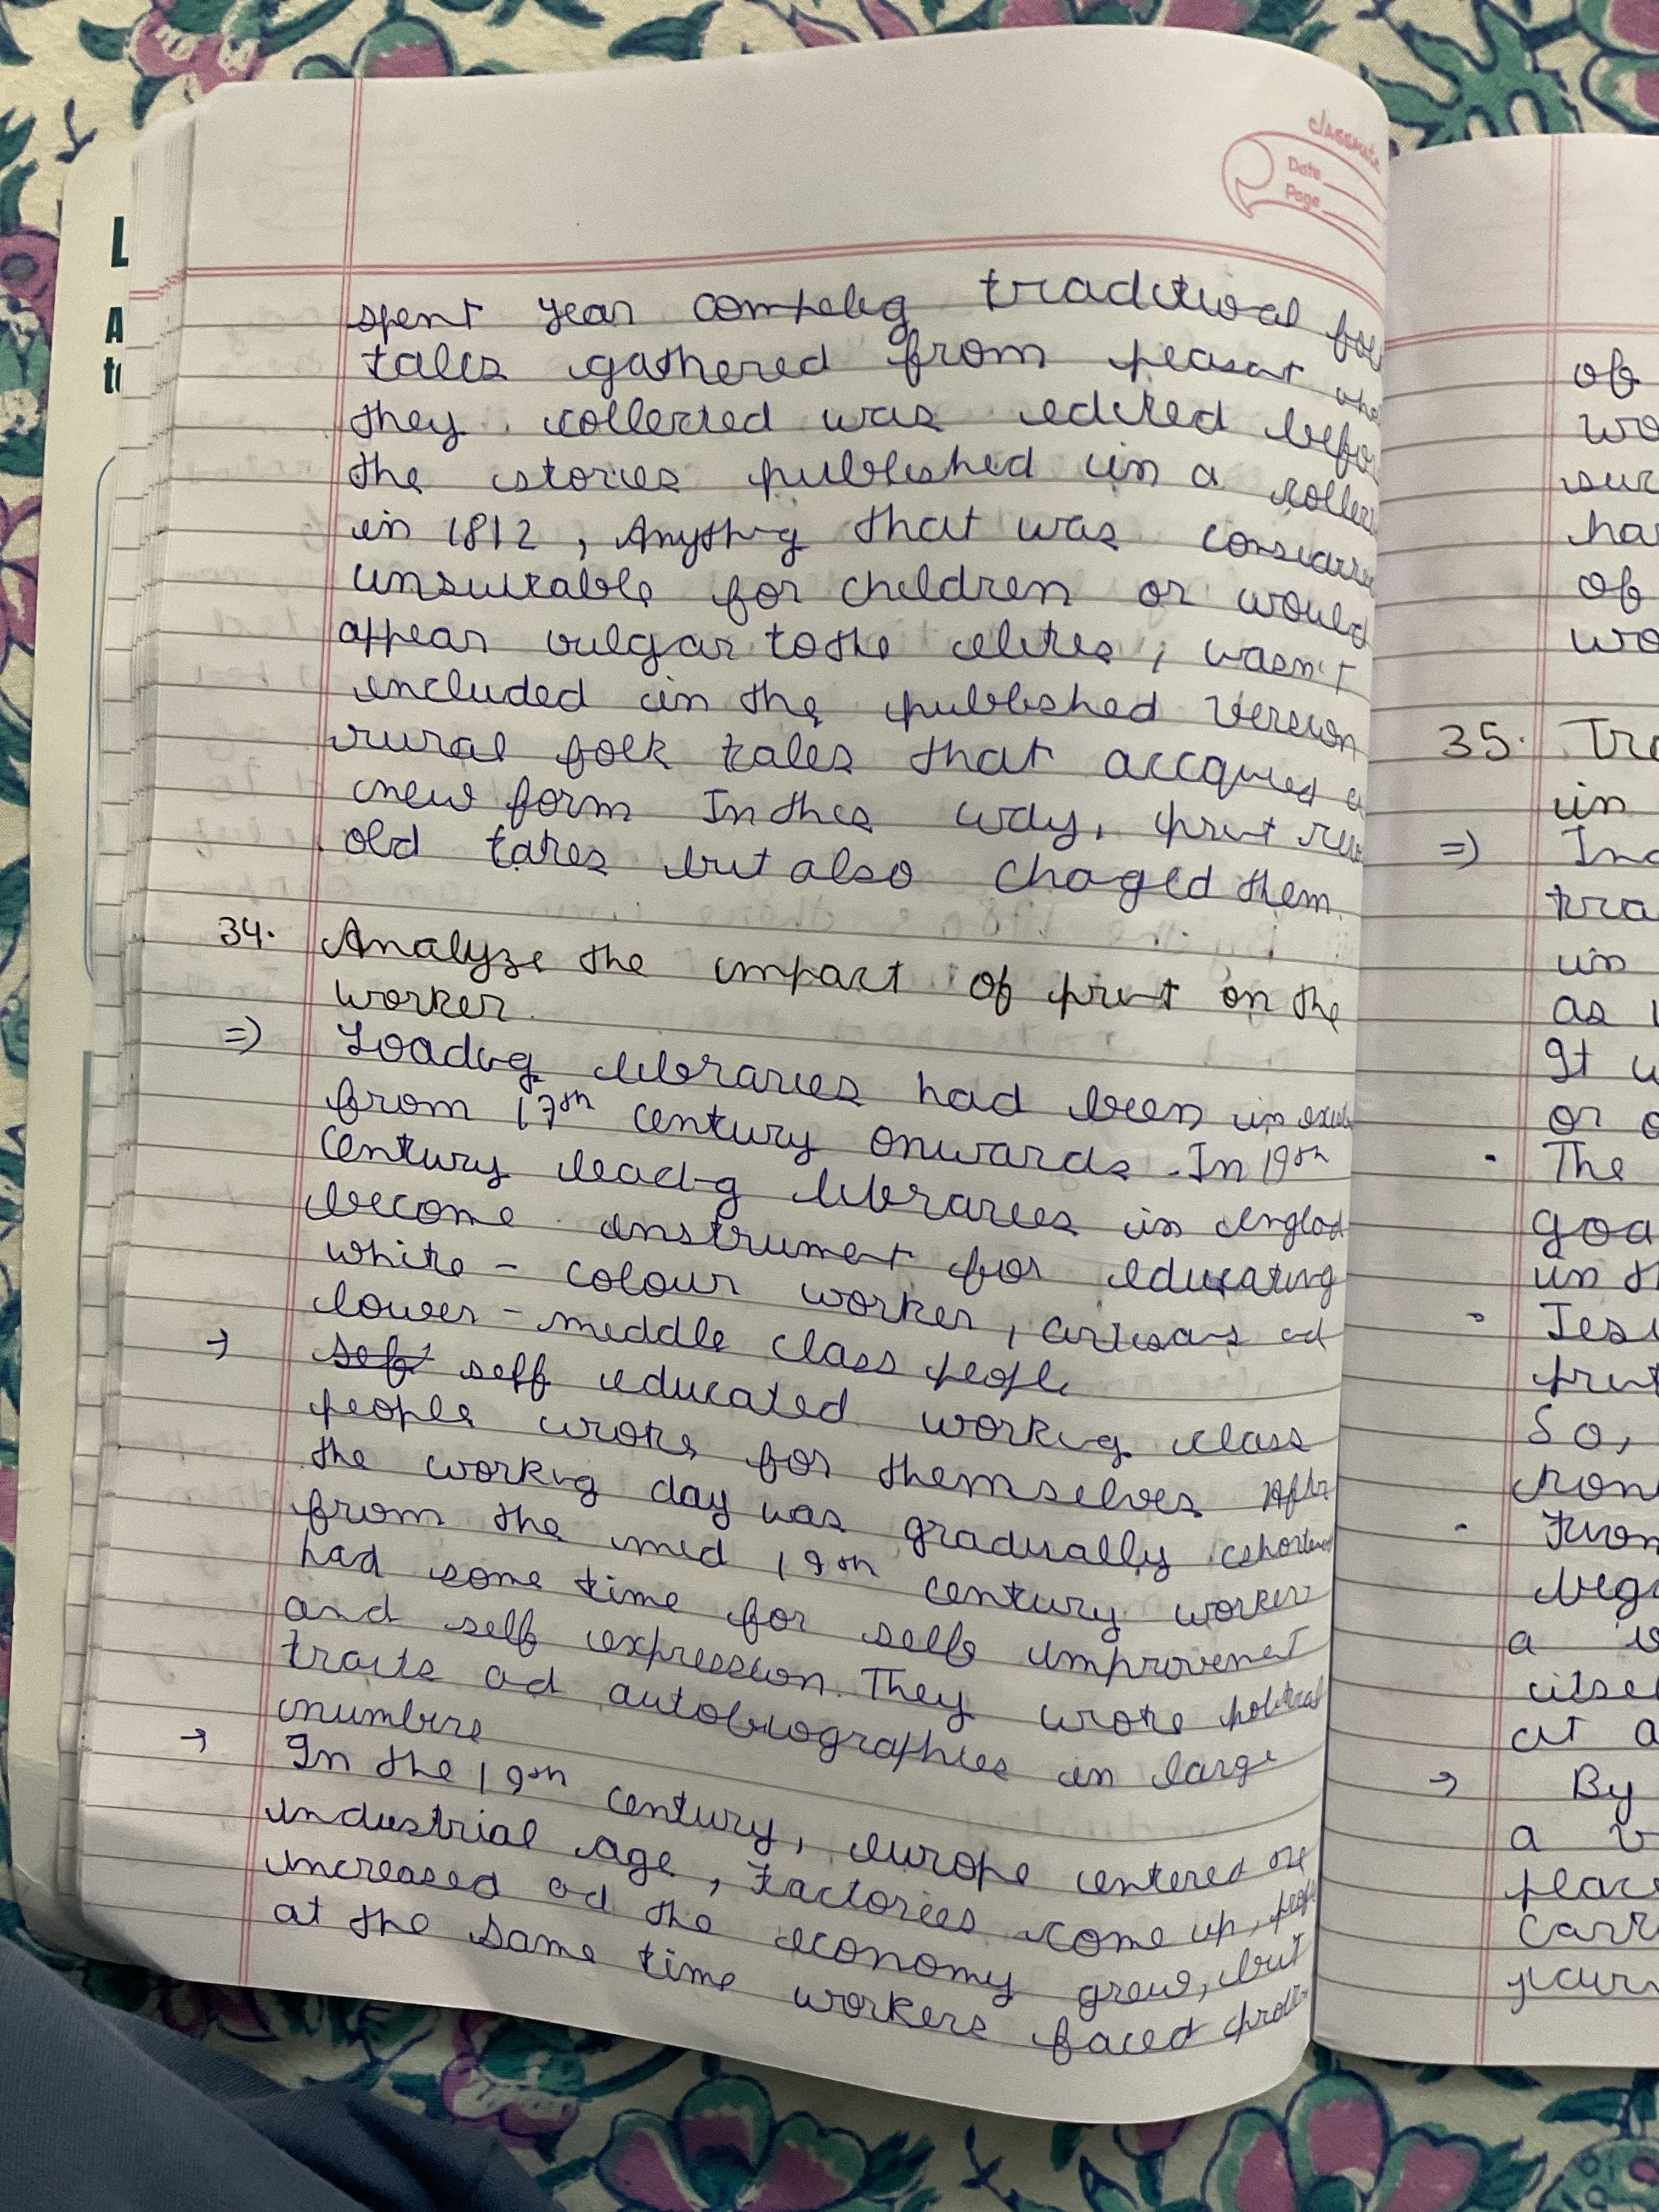 classmate
Date
Page
spent year compelig traditional
tales gathered from peasat
they collected was edited befo
the stories published in a collec
in 1812, Anythig that was
unsuitable for children or would
appear vulgar to the elites, wasn't
included in the published version
rural folk tales that accquied a
new form In thes way, prit
old tates but also chaged them.
34. Analyze the impact of prit on the
worker.
=) Loadig libraries had been in
from 17th century onwards. In 19th
century leadig libraries in englad
become instrumet for educating
white - colour worker, artisas ad
lower - middle class people
→ self educated workig class
people wrote for themselves After
the workig day was gradually
from the mid 19th century worker
had some time for self improvemet
and self expression. They wrote political
traits ad autobiographies in large
numbers
→ In the 19th century, europe entered
industrial age, Factories come up,
increased ad the economy grew, but
at the same time workers faced
of
wo
suc
ha
of
wo
35. Tra
in
=) In
tra
in
as
It w
or
• The
goa
in th
• Jesu
prit
So,
ron
• From
beg
a
itsel
at a
→ By
a
place
carr